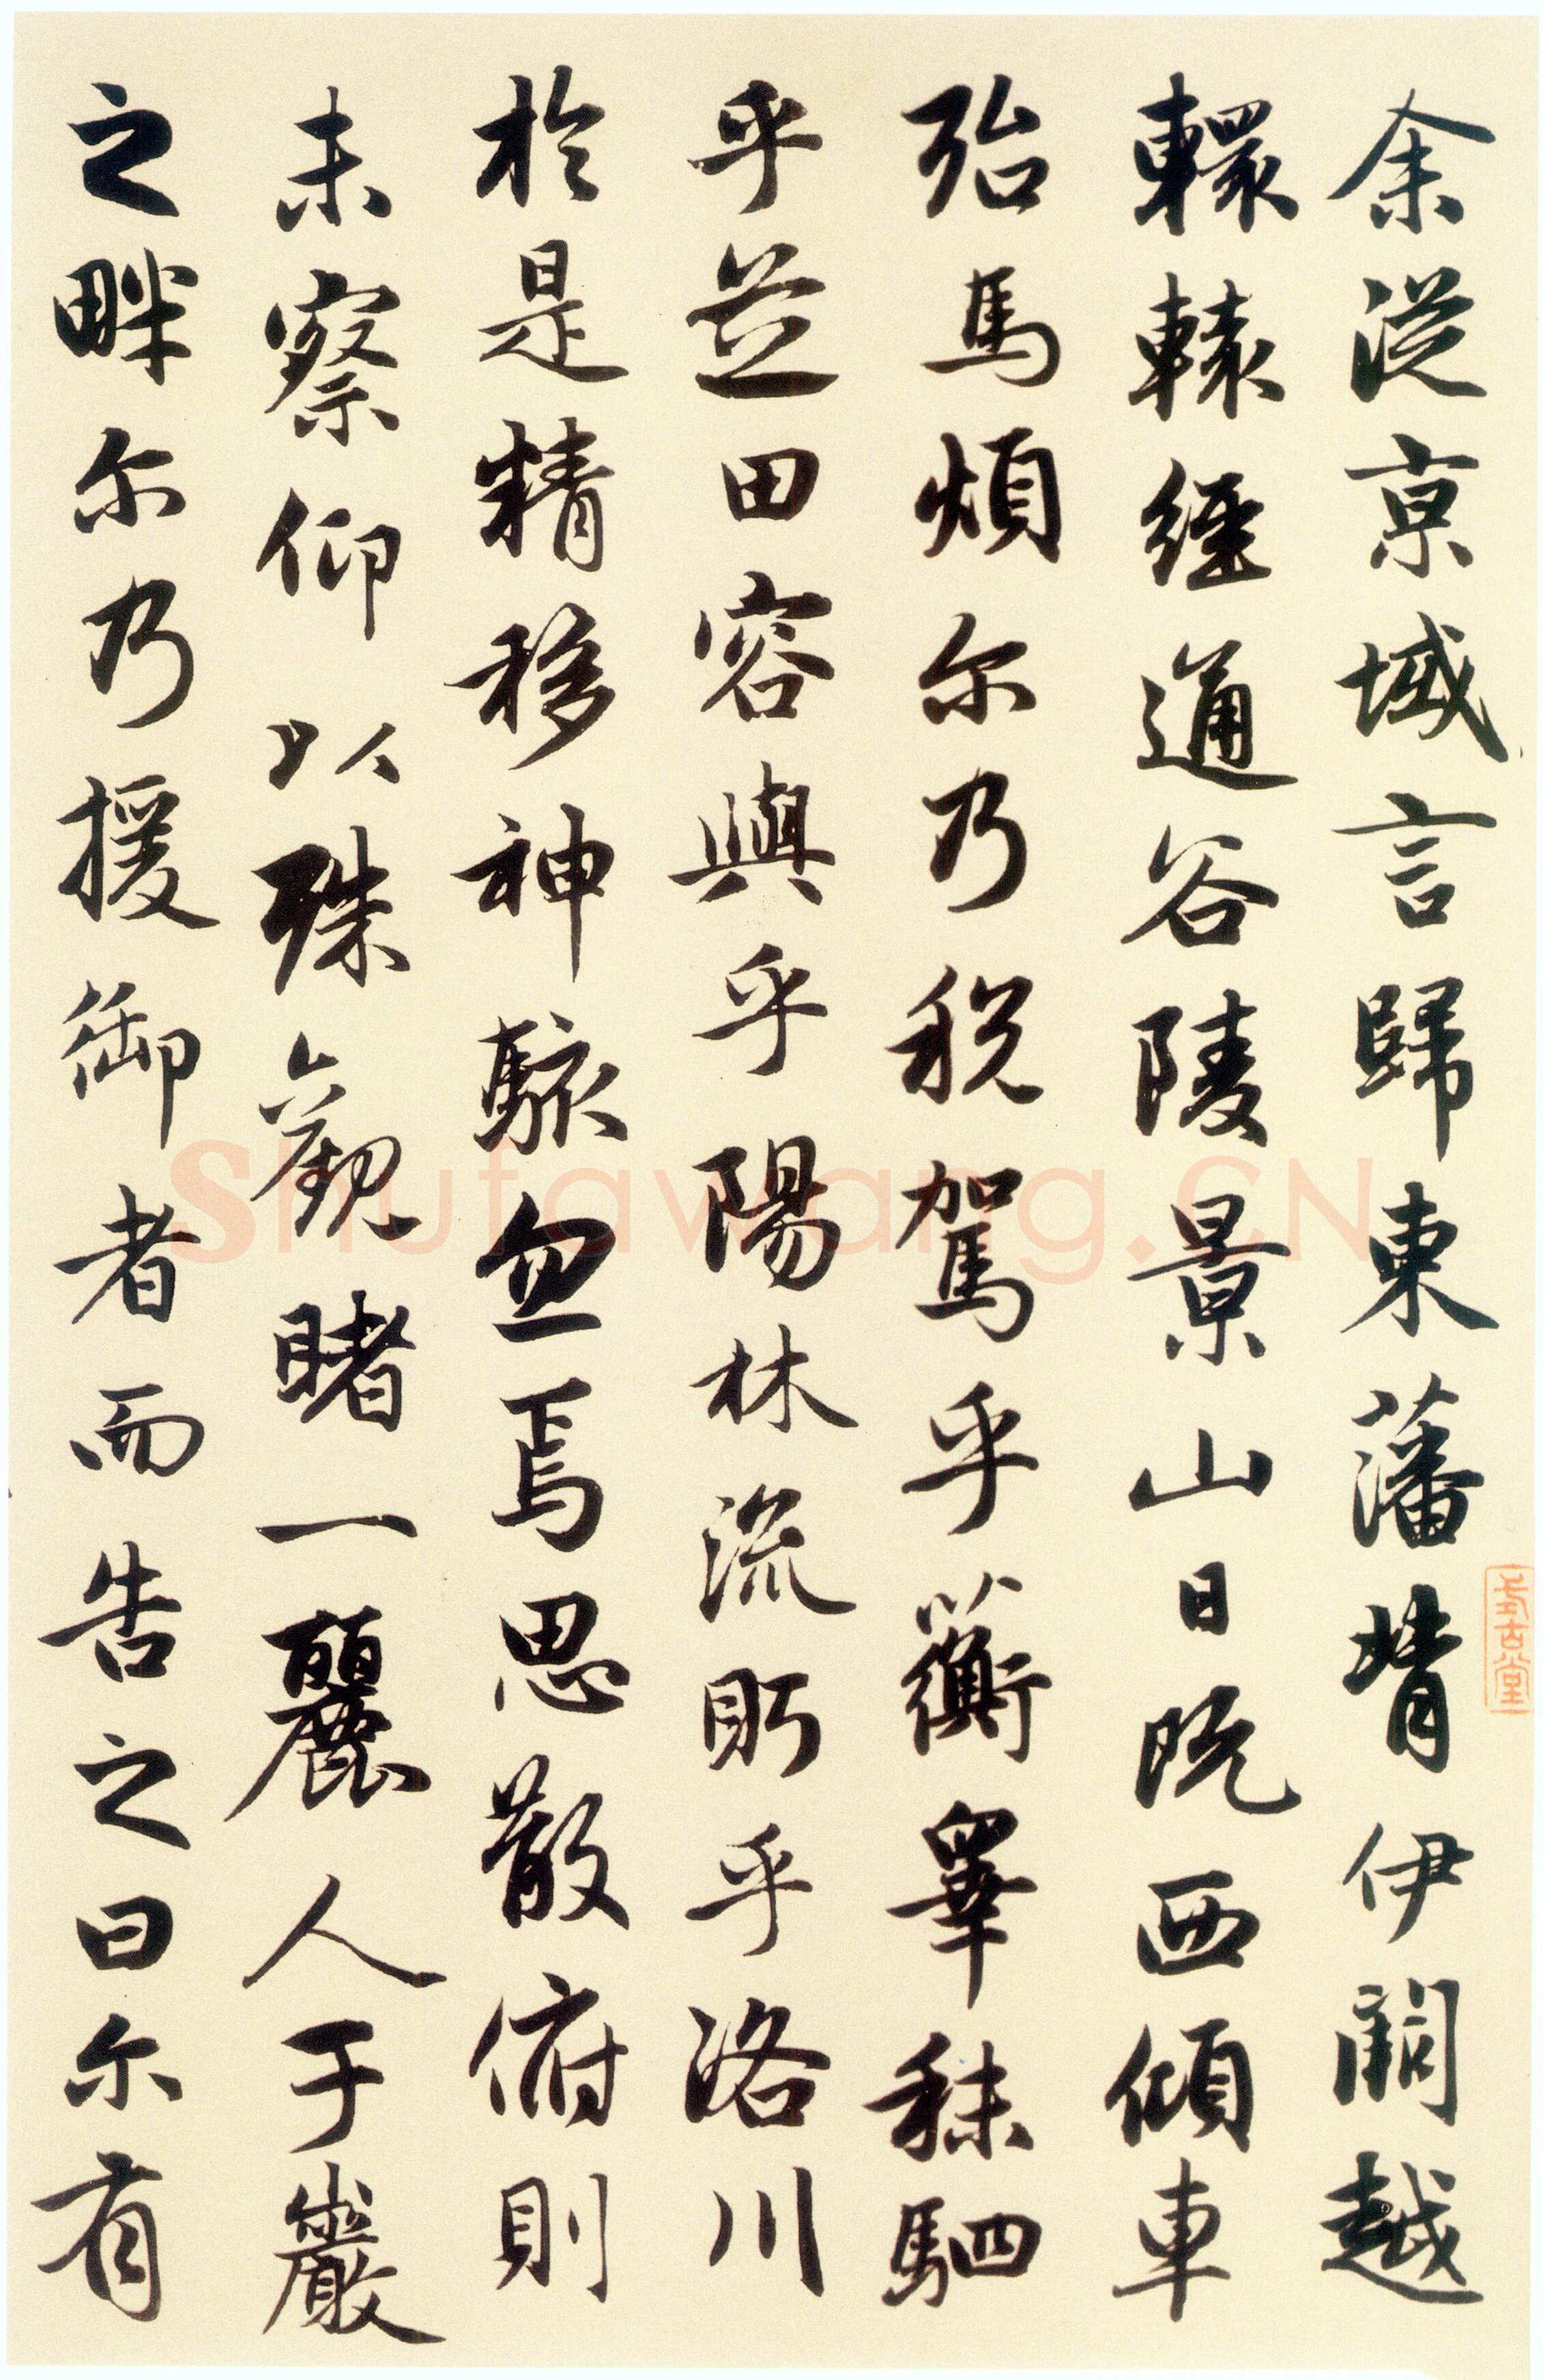 余從京域言歸東藩背伊闕越
轘轅經通谷陵景山日既西傾車
殆馬煩尔乃税駕乎蘅睾秣駟
乎芝田容與乎陽林流眄乎洛川
於是精移神駭忽焉思散俯則
未察仰以殊觀睹一麗人于巖
之畔尔乃援御者而告之曰尔有
Shufawang.CN